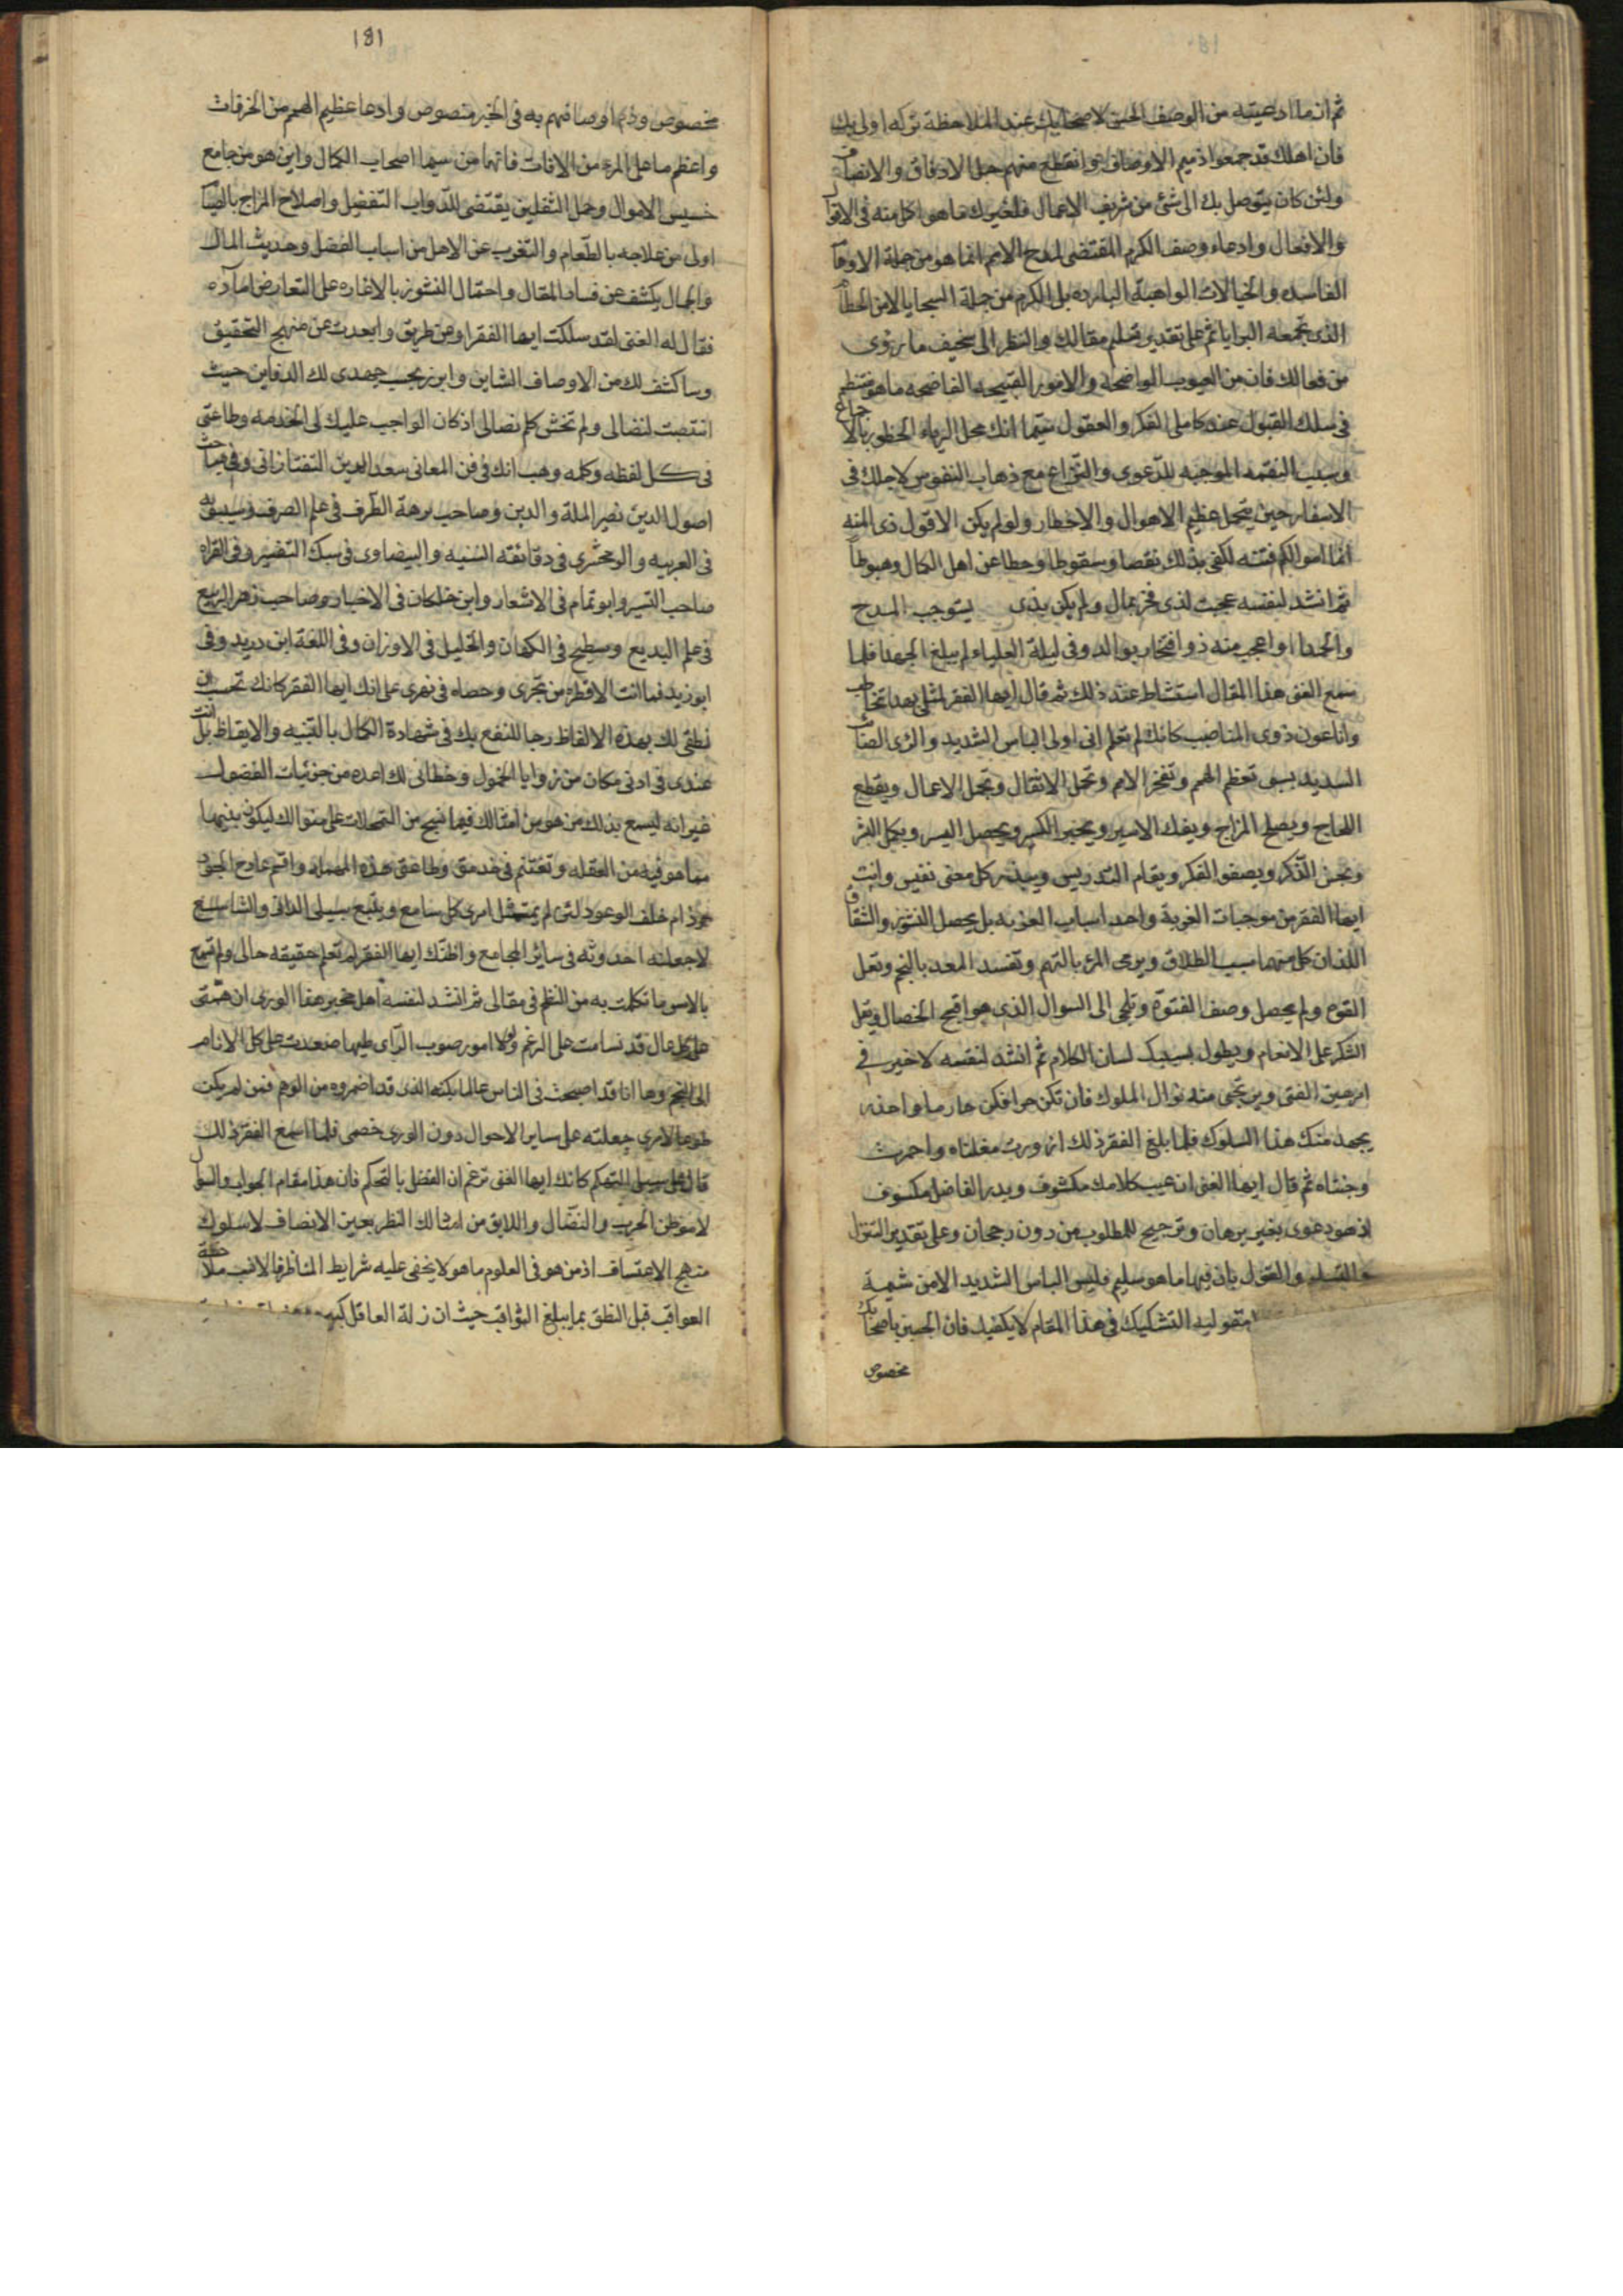 ثم ان ما ادعيته من الوصف الحسن لاصحابك عند الملاحظة تركه اولى بك
فان اهلك قد جمعوا ذميم الاوصاف وانقطع منهم حبل الارفاق والانصاف
ولئن كان يتوصل بك الى شئ من شريف الاعمال فلغيرك ما هو اكمل منه فى الاقوال
والافعال وادعاء وصف الكرم المقتضى لمدح الامم انما هو من جملة الاوهام
الفاسده والخيالات الواهية البارده بل الكرم من جملة السجايا لا من الحطام
الذى تجمعه البرايا ثم على تقدير تسليم مقالك والنظر الى سخيف ما يروى
من فعالك فان من العيوب الواضحه والامور القبيحه الفاضحه ما هو منتظم
فى سلك القبول عند كاملى الفكر والعقول سيما انك محل الرياء المحظور بالاجماع
وسبب النقمه الموجبه للدعوى والنزاع مع ذهاب النفوس لاجلك فى
الاسفار حين يتحمل عظيم الاهوال والاخطار ولو لم يكن الا قول ذى المنه
انما اموالكم فتنه لكفى بذلك نقصا وسقوطا وحطا عن اهل الكمال وهبوطا
ثم انشد لنفسه عجبت لذى فخر بمال ولم يكن بذى يستوجب المدح
والحمدا واعجب منه ذو افتخار بوالد وفى ليلة العليا ولم يبلغ الجهدا فلما
سمع الغنى هذا المقال استشاط عند ذلك ثم قال ايها الفقر لمثلى بهذا تخاطب
وانا عون ذوى المناصب كانك لم تعلم انى اولى الباس الشديد والراى الصائب
السديد بسبى تعظم الهمم وتفخر الامم وتحمل الاثقال وتجمل الاعمال ويقطع
اللجاج ويصلح المزاج ويفك الاسير ويجبر الكسير ويحصل اليسر ويكمل البشر
ويحسن الذكر ويصفو الفكر ويقام التدريس ويبذر كل معنى نفيس وانت
ايها الفقر من موجبات الغربة واحد اسباب العزبه بل يحصل النشوز والشقاق
اللذان كل منهما سبب الطلاق ويرمى المرء بالتهم وتفسد المعد بالتخم وتعل
القوى ولم يحصل وصف الفتوة وتلجى الى السوال الذى هو اقبح الخصال ويقل
الشكر على الانعام ويطول بسببك لسان الكلام ثم انشد لنفسه لا خير فى
من الفتى ويرتجى منه نوال الملوك فان تكن حرا فكن حازما واحذر
بجهد منك هذا السلوك فلما بلغ الفقر ذلك ازورت مقلتاه واحمرت
وجنتاه ثم قال ايها الغنى ان عيب كلامك مكشوف وبدر الفاضل مكسوف
اذ هو دعوى بغير برهان وترجيح للمطلوب من دون رجحان وعلى تقدير التنزل
والتسليم والقول بان فيها ما هو سليم فليس الباس الشديد الا من شيمة
متوليه التشكيك فى هذا المقام لا يكفيك فان الجبن باصحابك
مخصوص
181
مخصوص وذم اوصافهم به فى الخبر منصوص وادعا عظيم الهمم من الخرافات
واعظم ما على المرء من الافات فاتها من سيما اصحاب الكمال واين هو من جامع
خسيس الاموال وحمل الثقلين يقتضى للدواب التفضيل واصلاح المزاج بالصيام
اولى من علاجه بالطعام والتغرب عن الاهل من اسباب الفضل وحديث المال
والجمال يكشف عن فساد المقال واحتمال النشوز بالاغاره على التعارض اماره
فقال له الغنى لقد سلكت ايها الفقر اوعر طريق وابعدت عن منهج التحقيق
وساكشف لك من الاوصاف الشاين وابرز بجيب جهدى لك الدفاين حيث
انتصبت لنضالى ولم تخش كلم نصالى اذ كان الواجب عليك لى الخدمه وطاعتى
فى كل لفظه وكلمه وهب انك فى فن المعانى سعد الدين التفتازانى وفى مباحث
اصول الدين نصير الملة والدين وصاحب نزهة الطرف فى علم الصرف وسيبويه
فى العربيه والزمخشرى فى دقائقه السنيه والبيضاوى فى سبك التفسير وفى القراه
صاحب التيسير وابو تمام فى الاشعار وابن خلكان فى الاخبار وصاحب زهر الربيع
فى علم البديع وسطيح فى الكهان والخليل فى الاوزان وفى اللغة ابن دريد وفى
ابو زيد فما انت الا قطرة من بحرى وحصاه فى نهرى على انك ايها الفقر كانك تحسب ان
نطقى لك بهذه الالفاظ رجا للنفع بك فى شهادة الكمال بالتنبيه والايقاظ بل انت
عندى فى ادنى مكان من زوايا الخمول وخطابى لك اعده من جزئيات الفضول
غير انه ليسمع بذلك من هو من امثالك فيما نسج من التمحلات على منوالك ليكون بتنبهما
مما هو فيه من الغفله وتغتنم فى خدمتى وطاعتى هذه المهمله واقسم بمادح الجود
وذام خلف الوعود لئن لم يمتثل امرى كل سامع ويتبع سبيلى الدانى والشاسع
لاجعلنه احدوثه فى ساير المجامع واظنك ايها الفقر لم تعلم حقيقه حالى ولم تسمع
بالامس ما تكلمت به من النظم فى مقالى ثم انشد لنفسه اهل مخبر هذا الورى ان همتى
على كل عال قد تسامت على الرغم ولا امور صوب الراى طيها صعدت على كل الانام
الى النجم وها انا قد اصبحت فى الناس عالما بكنه الذى قد اضمروه من الوهم فمن لم يكن
طوعا لامرى جعلته على ساير الاحوال دون الورى خصمى فلما سمع الفقر ذلك
قال على سبيل التهكم كانك ايها الغنى تزعم ان الفضل بالتحكم فان هذا مقام الجواب والسوال
لا موطن الحرب والنضال واللايق من امثالك النظر بعين الانصاف لا سلوك
منهج الاعتساف اذ من هو فى العلوم ماهر لا يخفى عليه شرايط المناظر فالانسب ملاحظة
العواقب قبل النطق بما يبلغ الثواقب حيث ان زلة العاقل كبيره